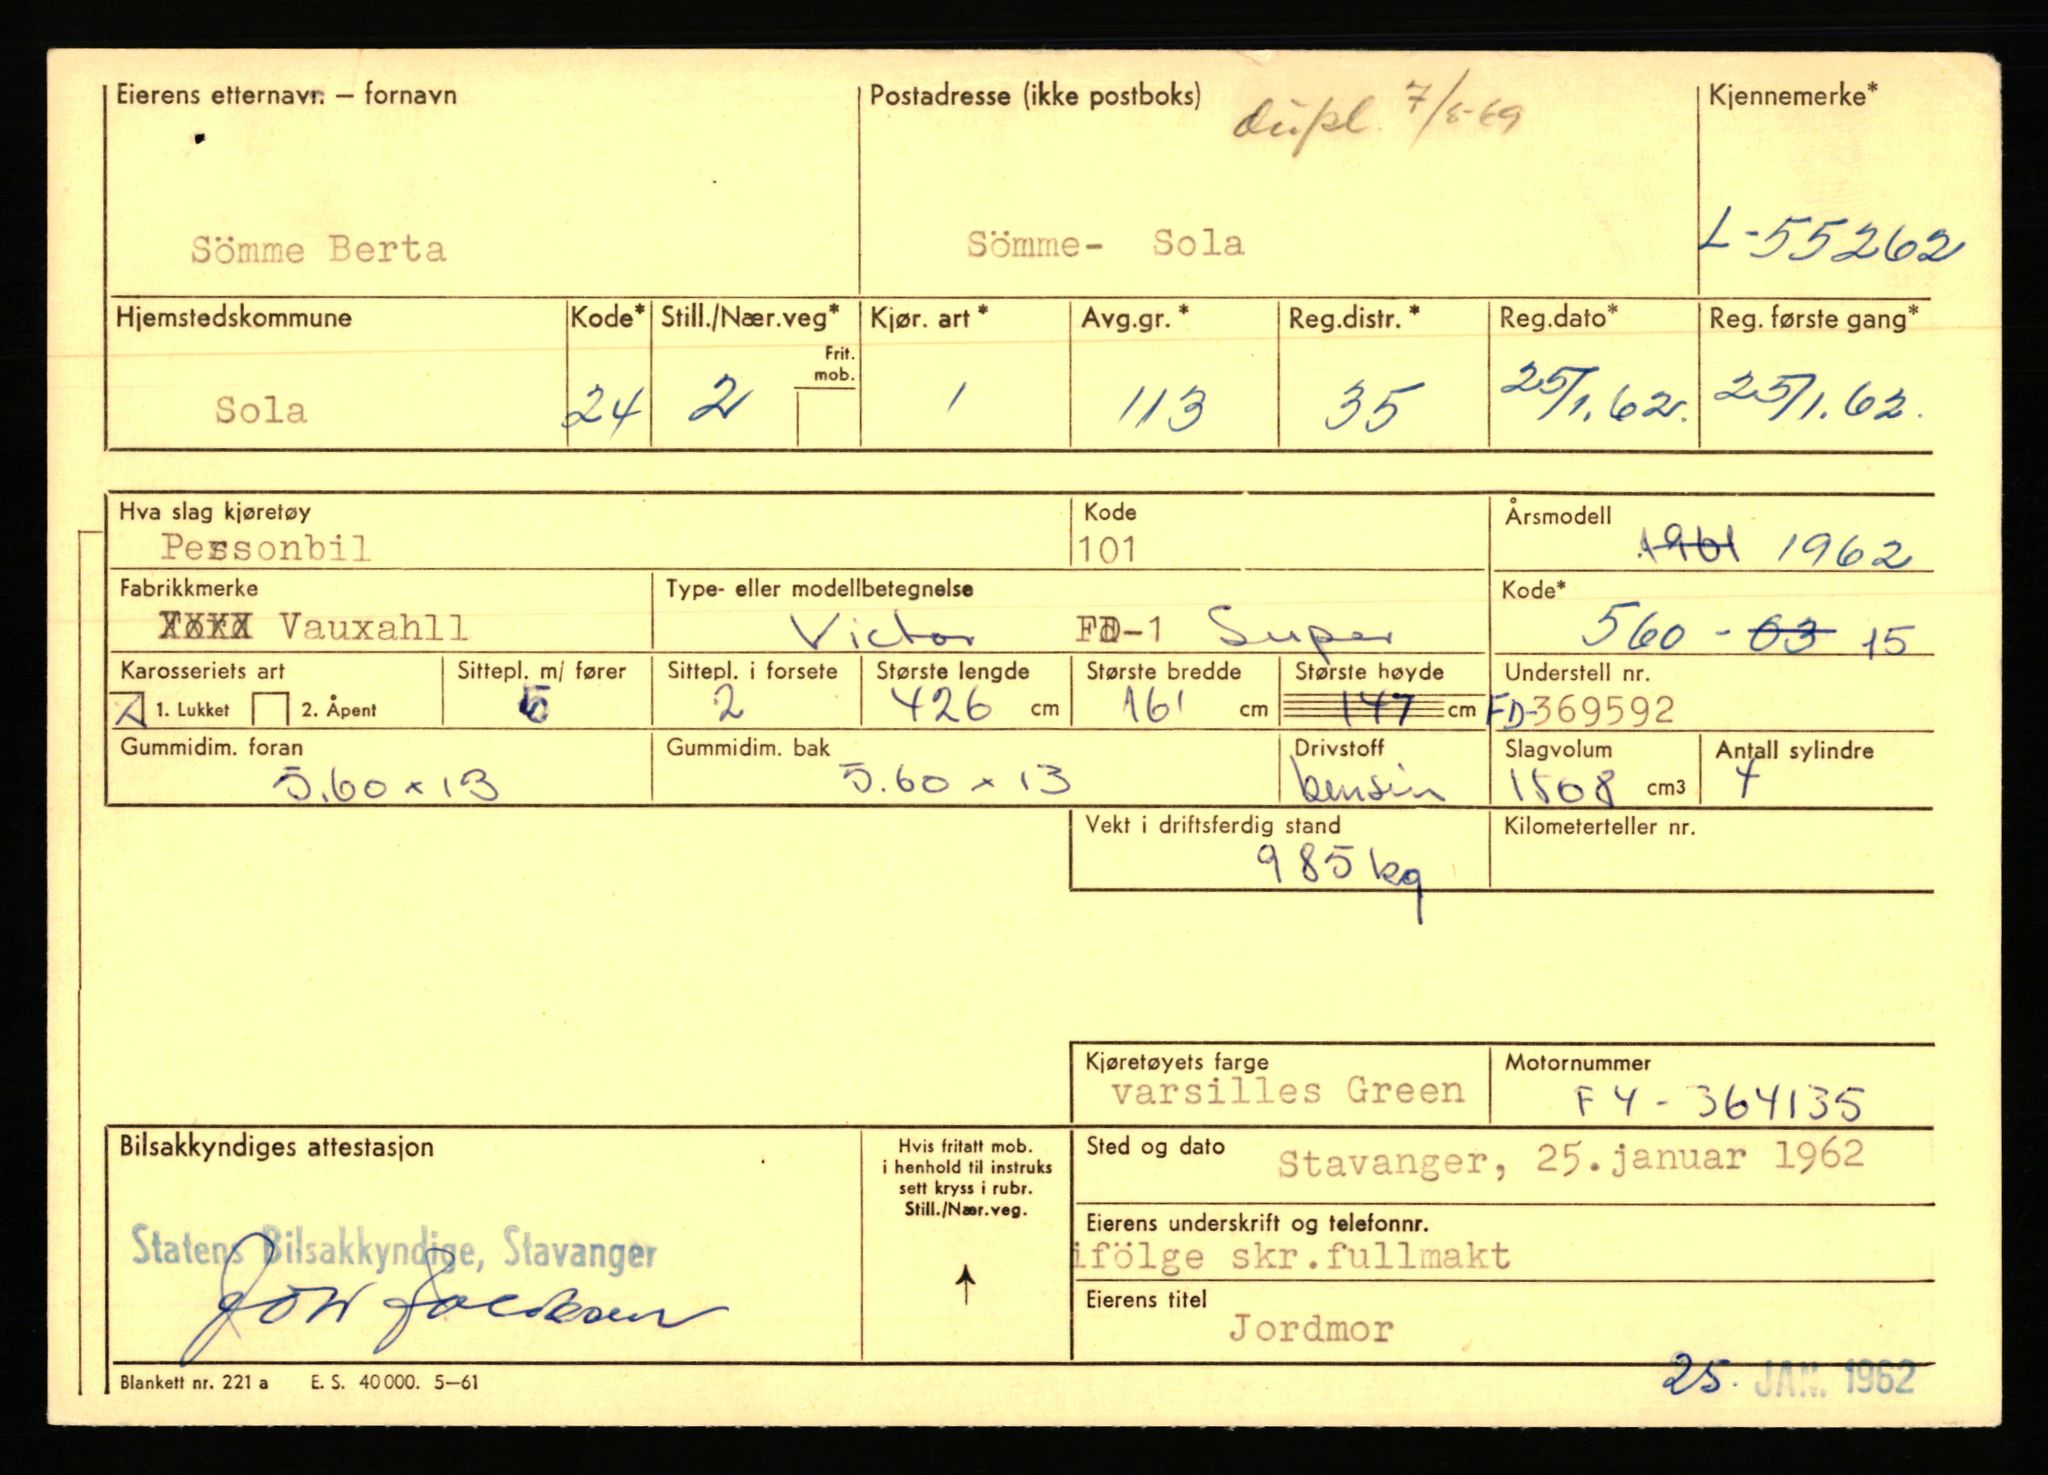 Eierens etternavn. — fornavn
Postadresse (ikke postboks)
dupl. 7/8-69
Kjennemerke*
Sömme Berta
Sömme- Sola
L-55262
Hjemstedskommune
Kode*
Still./Nær.veg*
Frit. mob.
Kjør. art*
Avg.gr.*
Reg.distr.*
Reg.dato*
Reg. første gang*
Sola
24
2
1
113
35
25/1.62.
25/1.62.
Hva slag kjøretøy
Personbil
Kode
101
Årsmodell
1961 1962
Fabrikkmerke
Vauxahll
Type- eller modellbetegnelse
Victor FD-1 Super
Kode*
560 - 03 15
Karosseriets art
1. Lukket 2. Åpent
Sittepl. m/ fører
5
Sittepl. i forsete
2
Største lengde
426 cm
Største bredde
161 cm
Største høyde
147 cm
Understell nr.
FD-369592
Gummidim. foran
5.60 x 13
Gummidim. bak
5.60 x 13
Drivstoff
bensin
Slagvolum
1508 cm3
Antall sylindre
4
Vekt i driftsferdig stand
985 kg
Kilometerteller nr.
Kjøretøyets farge
varsilles Green
Motornummer
F4 - 364135
Bilsakkyndiges attestasjon
Statens Bilsakkyndige, Stavanger
Hvis fritatt mob.
i henhold til instruks
sett kryss i rubr.
Still./Nær.veg.
Sted og dato
Stavanger, 25.januar 1962
Eierens underskrift og telefonnr.
ifölge skr.fullmakt
Eierens titel
Jordmor
Blankett nr. 221 a E. S. 40 000. 5—61
25. JAN. 1962